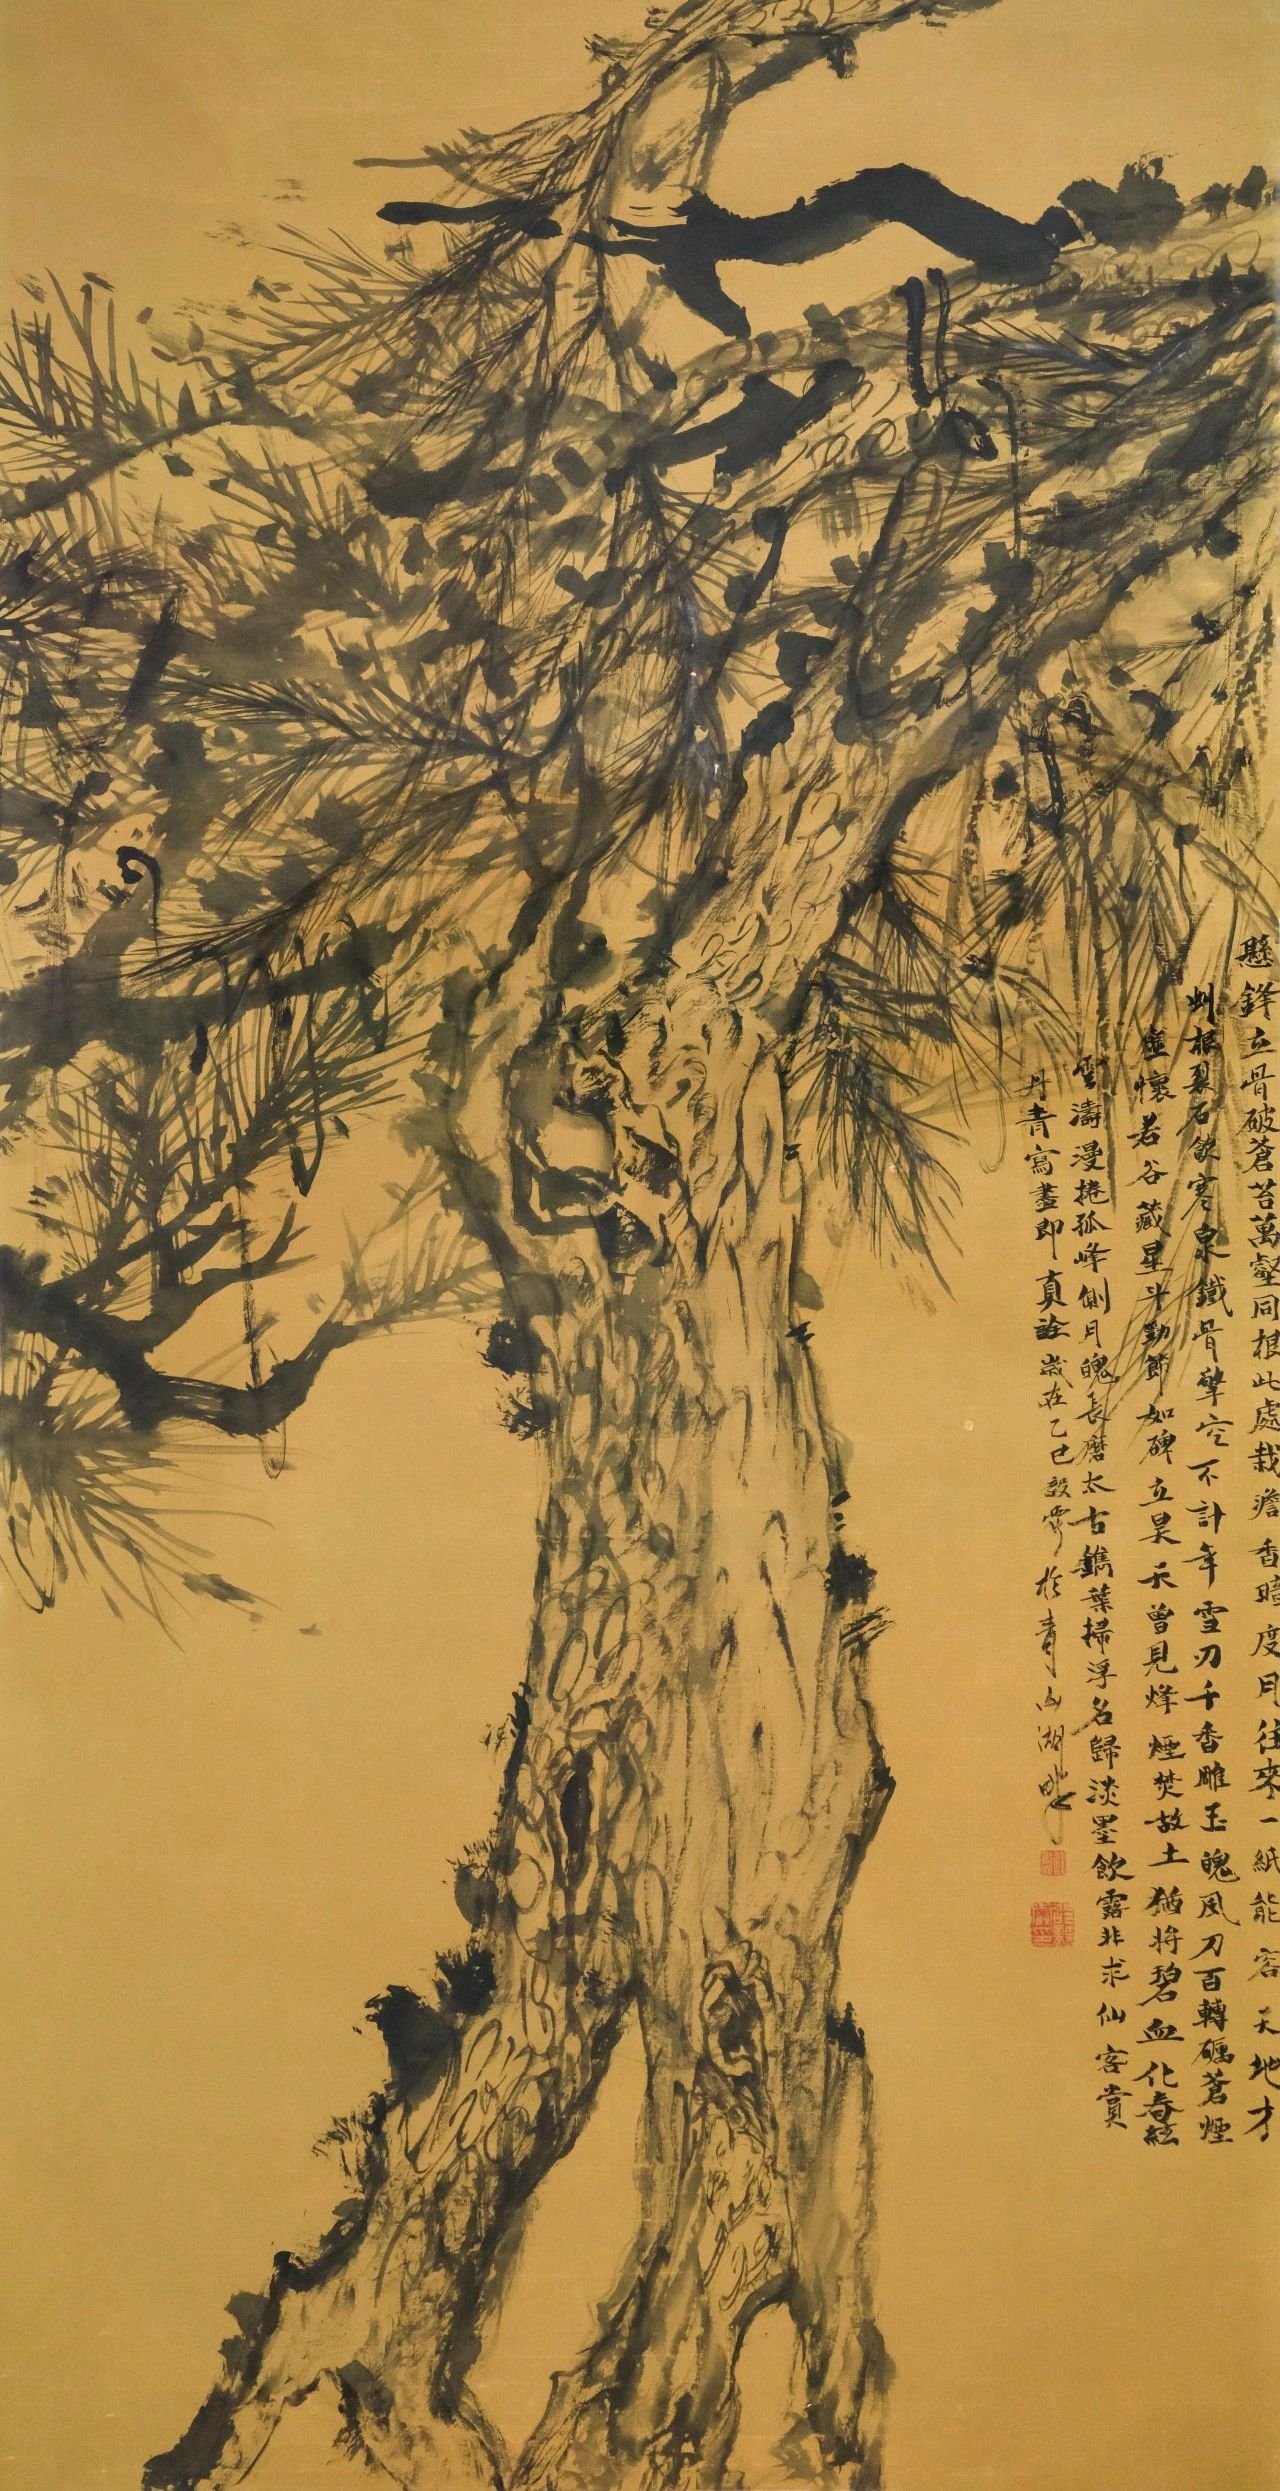 懸鋒立骨破蒼苔萬壑同根此處栽澹香暗度月往來一紙能容天地才
虬根裂石飲寒泉鐵骨擎空不計年雪刃千香雕玉魄風刀百轉礪蒼煙
虛懷若谷藏星斗勁節如碑立昊天曾見烽煙焚故土猶將碧血化春絃
雲濤漫捲孤峰側月魄長磨太古鐫葉掃浮名歸淡墨飲露非求仙客賞
丹青寫盡即真詮歲在乙巳 於青山湖畔